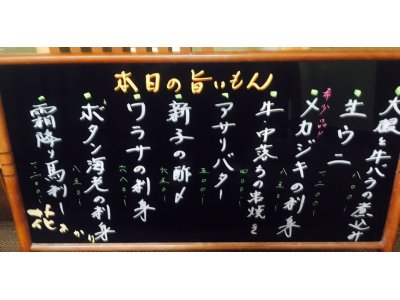 本日の旨いもん
大根と牛バラの煮込み
生ウニ
希少品
メカジキの刺身
八五〇-
牛中落ちの串焼き
アサリバター
五〇〇-
新子の酢〆
ワラサの刺身
ボタン海老の刺身
八五〇-
霜降り馬刺し
一二〇〇-
花あかり